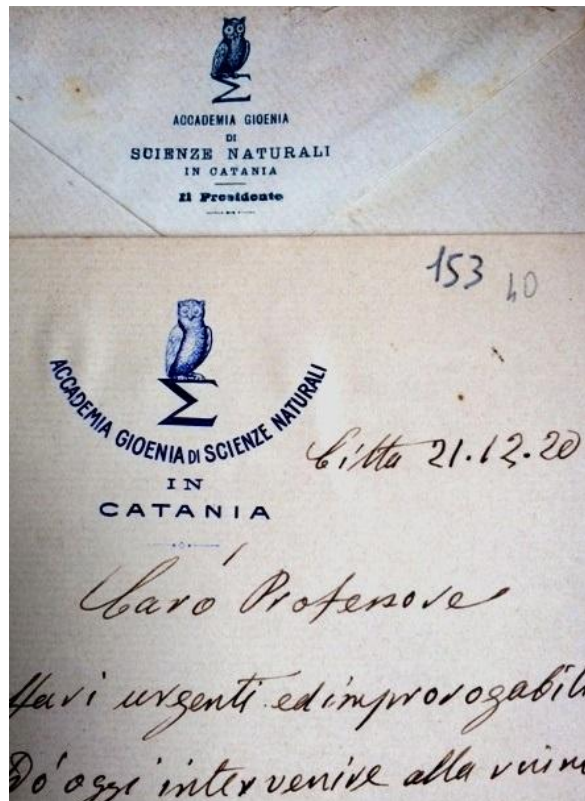 Σ
ACCADEMIA GIOENIA
DI
SCIENZE NATURALI
IN CATANIA
Il Presidente
153
40
Σ
ACCADEMIA GIOENIA DI SCIENZE NATURALI
IN
CATANIA
Città 21.12.20
Caro Professore
urgenti ed improrogabili
oggi intervenire alla